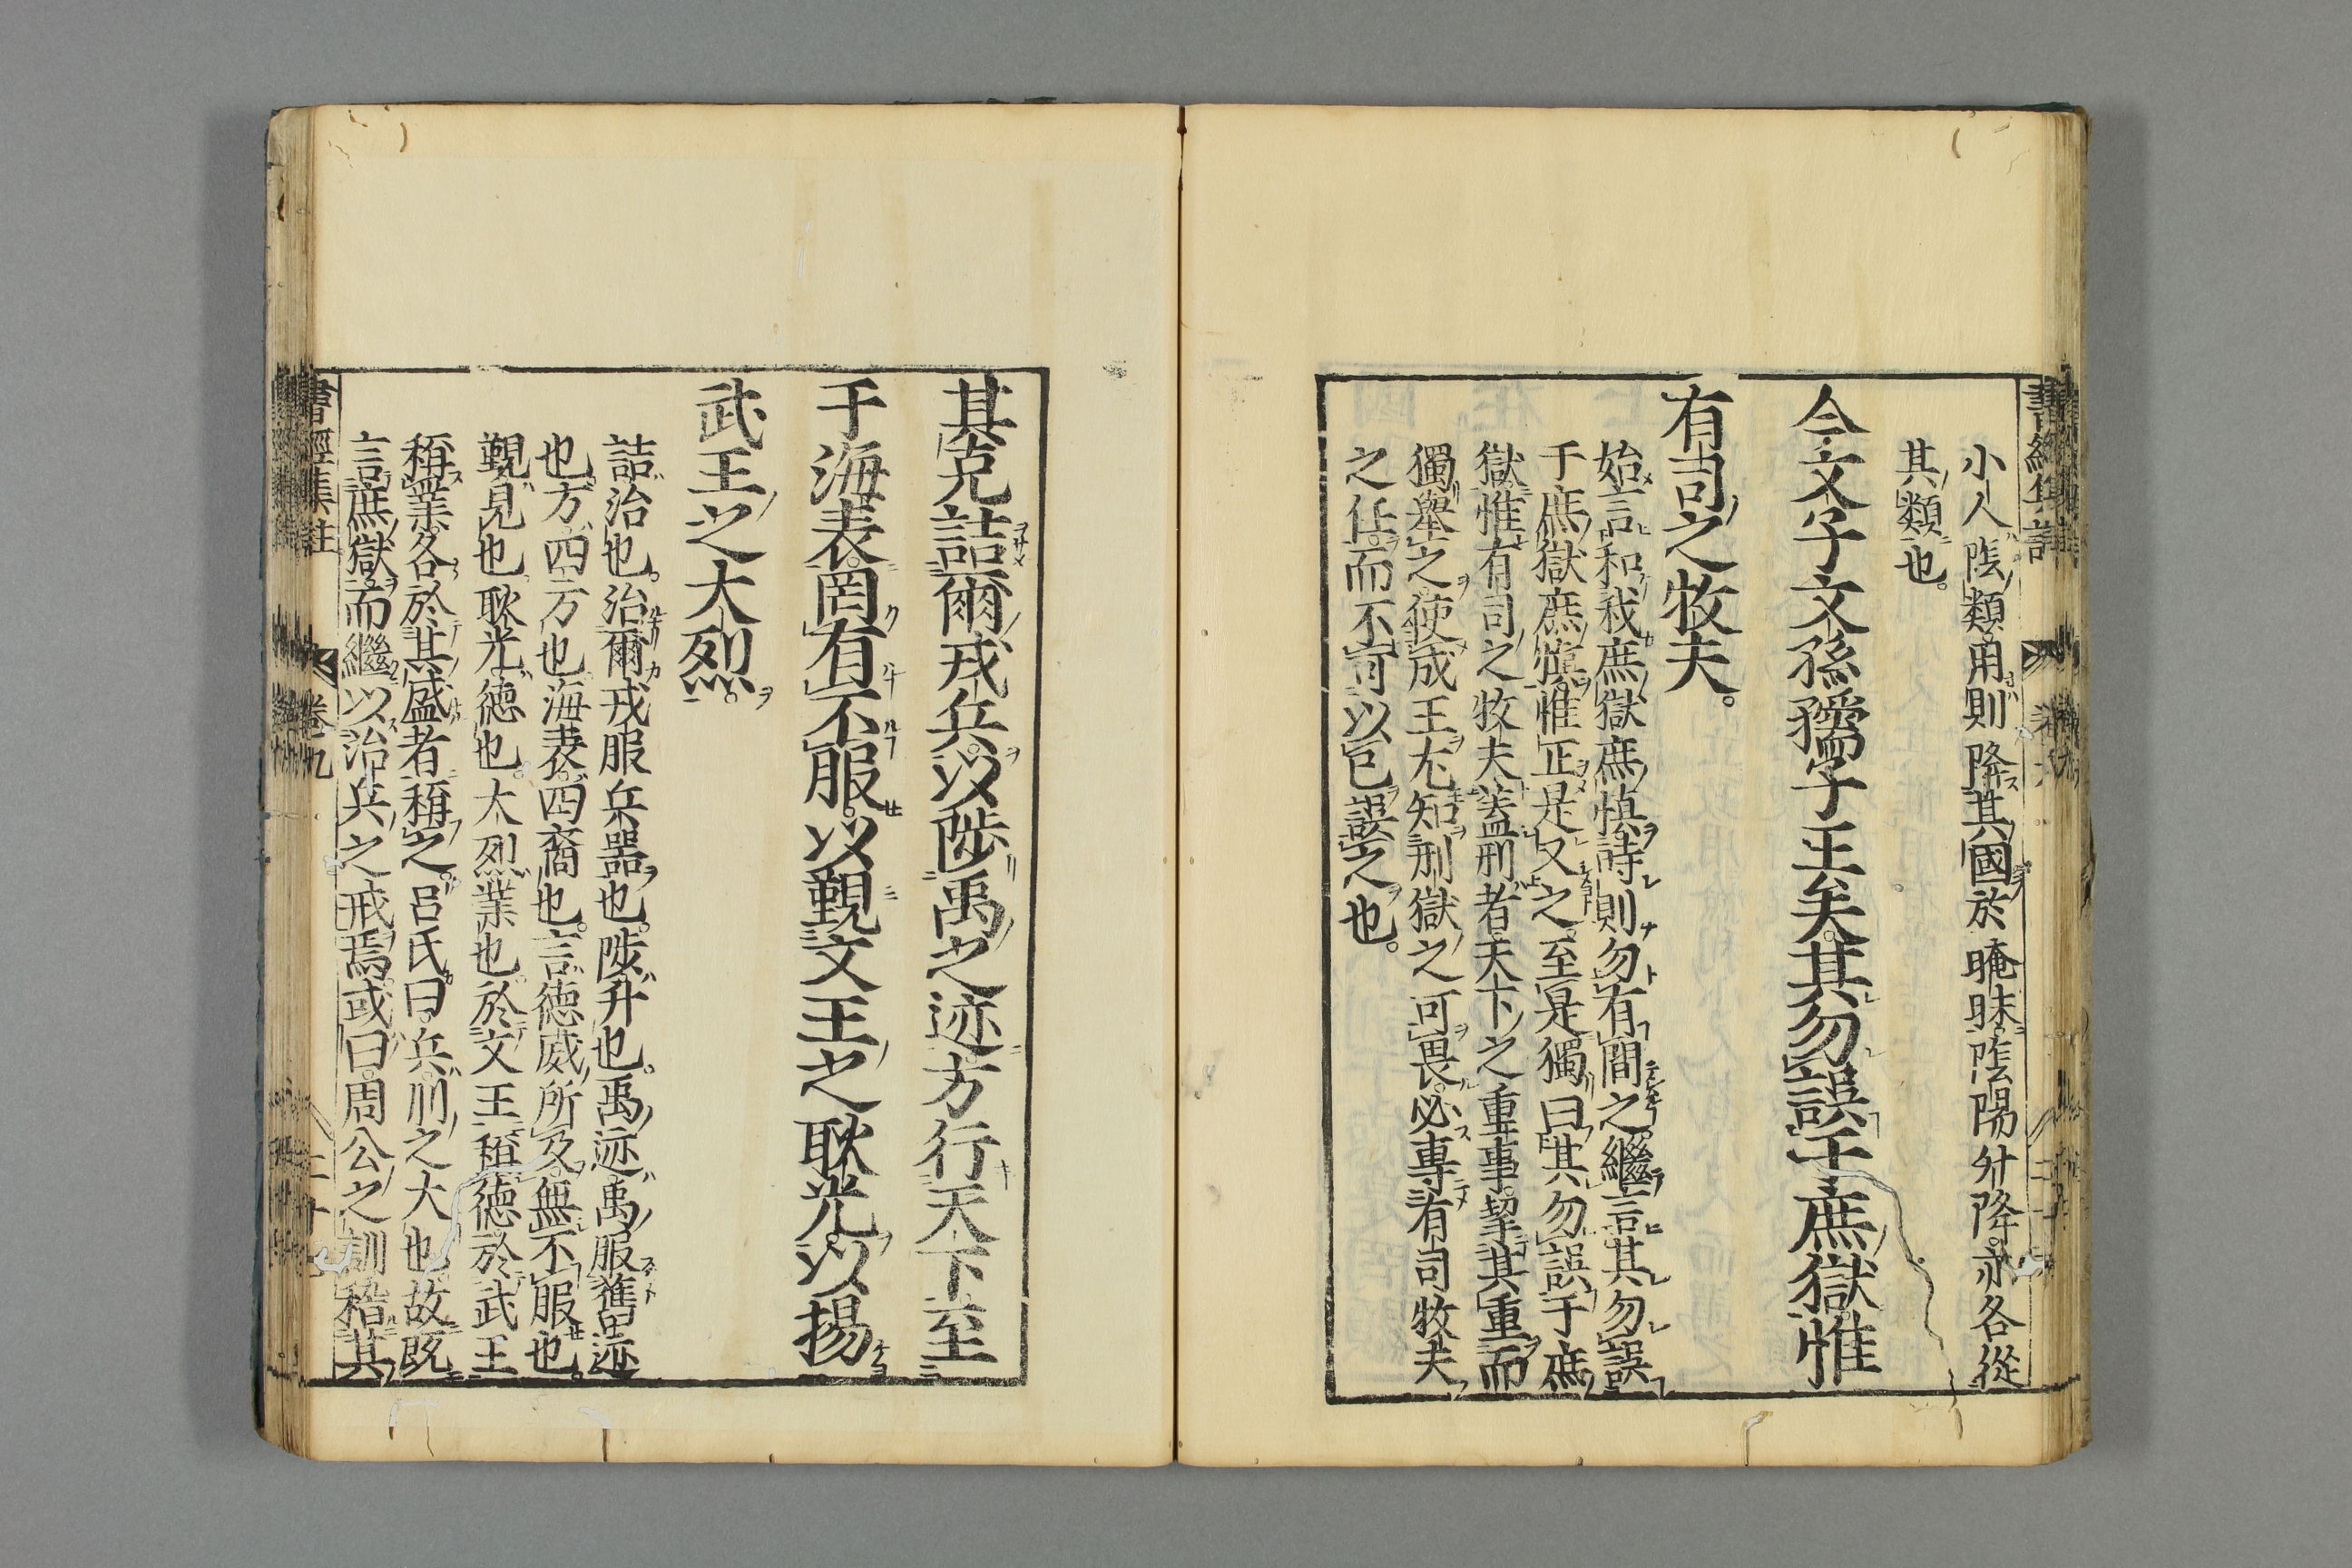 小人陰類用則降其國於晻昧陰陽升降亦各從
其類也。
今文子文孫孺子王矣其勿誤于庶獄惟
有司之牧夫。
始言和我庶獄庶愼時則勿有間之繼言其勿誤
于庶獄庶愼惟正是乂之至是獨曰其勿誤于庶
獄惟有司之牧夫蓋刑者天下之重事挈其重而
獨舉之使成王尤知刑獄之可畏必專有司牧夫
之任而不可以己誤之也。
其克詰爾戎兵以陟禹之迹方行天下至
于海表罔有不服。以覲文王之耿光以揚
武王之大烈。
詰治也。治爾戎服兵器也。陟升也。禹迹禹服舊迹
也方四方也海表四裔也。言德威所及無不服也。
覲見也耿光德也。大烈業也。於文王稱德於武王
稱業各於其盛者稱之。呂氏曰兵刑之大也故旣
言庶獄而繼以治兵之戒焉或曰周公之訓稽其
書經集註 卷九